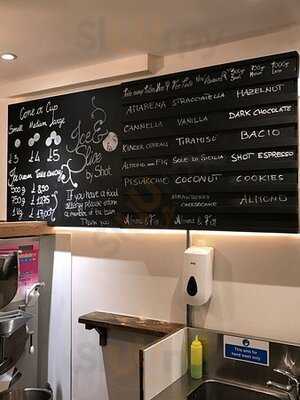 Cone or Cup
Small Medium Large
£3 £4 £5
Ice cream Take away
500g £ 8.90
750g £ 12.75
1 kg £ 17.00
Ice &
Slice
by Shot
If you have a food
allergy please inform
a member of the team
Thank you
AMARENA STRACCIATELLA HAZELNUT
CANNELLA VANILLA DARK CHOCOLATE
KINDER CEREAL TIRAMISU BACIO
SOLE DI SICILIA SHOT ESPRESSO
PISTACCHIO COCONUT COOKIES
CHEESECAKE ALMOND
Almond & Fig Almond & Fig
Hand wash only